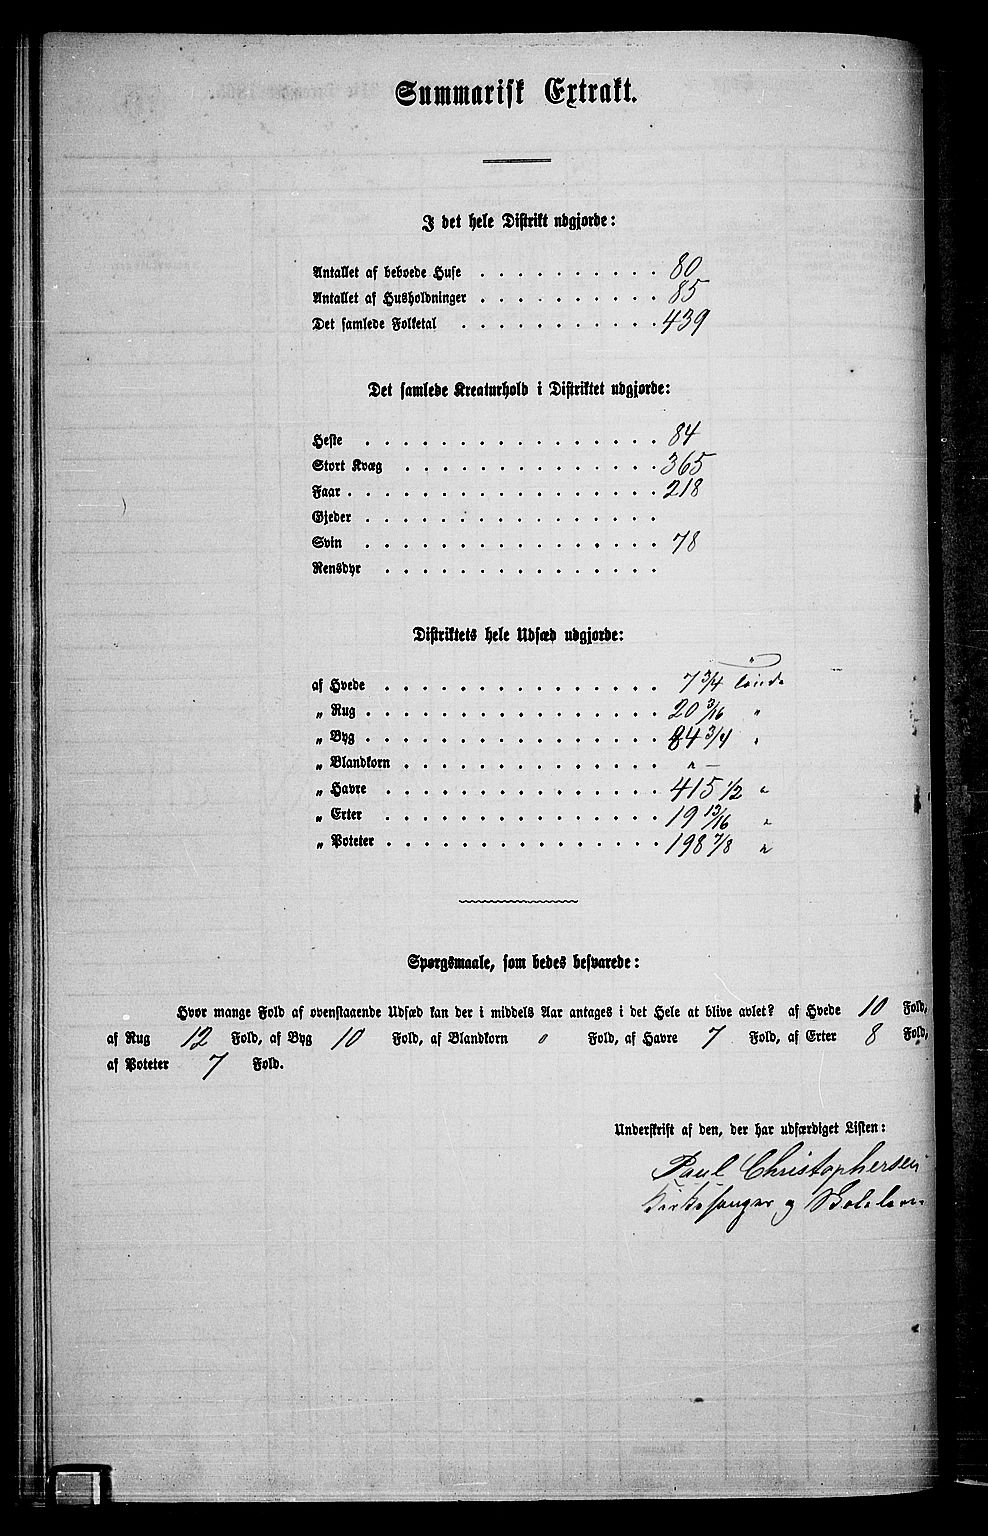 Summarisk Extrakt.
I det hele Distrikt udgjorde:
Antallet af beboede Huse . . . . . . . . . . 80
Antallet af Husholdninger . . . . . . . . . . 85
Det samlede Folketal . . . . . . . . . . . 439
Det samlede Kreaturhold i Distriktet udgjorde:
Heste . . . . . . . . . . . . . . . . 84
Stort Kvæg . . . . . . . . . . . . . . 365
Faar . . . . . . . . . . . . . . . . . 218
Gjeder . . . . . . . . . . . . . . . .
Svin . . . . . . . . . . . . . . . . 78
Rensdyr . . . . . . . . . . . . . . .
Distriktets hele Udsæd udgjorde:
af Hvede . . . . . . . . . . . . . . . 7 3/4 Tønde
„ Rug . . . . . . . . . . . . . . . . 20 3/16 "
„ Byg . . . . . . . . . . . . . . . . 84 3/4 "
„ Blandkorn . . . . . . . . . . . . . . " —
„ Havre . . . . . . . . . . . . . . . 415 1/2 "
„ Erter . . . . . . . . . . . . . . . 19 13/16 "
„ Poteter . . . . . . . . . . . . . . . 198 7/8 "
Spørgsmaale, som bedes besvarede:
Hvor mange Fold af ovenstaaende Udsæd kan der i middels Aar antages i det Hele at blive avlet? af Hvede 10 Fold,
af Rug 12 Fold, af Byg 10 Fold, af Blandkorn 0 Fold, af Havre 7 Fold, af Erter 8 Fold,
af Poteter 7 Fold.
Underskrift af den, der har udfærdiget Listen:
Paul Christophersen
Kirkesanger og